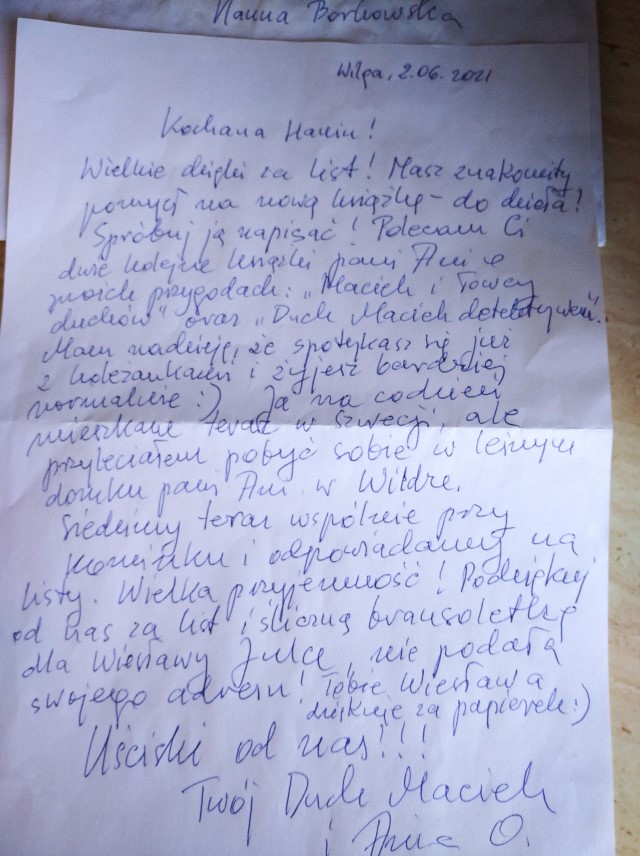 Hanna Borkowska
Wilga, 2.06.2021
Kochana Haniu!
Wielkie dzięki za list! Masz znakomity
pomysł na nową książkę - do dzieła!
Spróbuj ją napisać! Polecam Ci
dwie kolejne książki pani Ani o
moich przygodach: „Maciek i Łowcy
duchów" oraz „Duch Maciek detektywem".
Mam nadzieję, że spotykasz się już
z koleżankami i żyjesz bardziej
normalnie :) Ja na codzień
mieszkam teraz w Szwecji, ale
przyleciałem pobyć sobie w leśnym
domku pani Ani w Wildze.
Siedzimy teraz wspólnie przy
kominku i odpowiadamy na
listy. Wielka przyjemność! Podziękuj
od nas za list i śliczną bransoletkę
dla Wiesławy Julce, nie podała
swojego adresu! Tobie Wiesława
dziękuje za papierek :)
Uściski od nas!!!
Twój Duch Maciek
i Ania O.